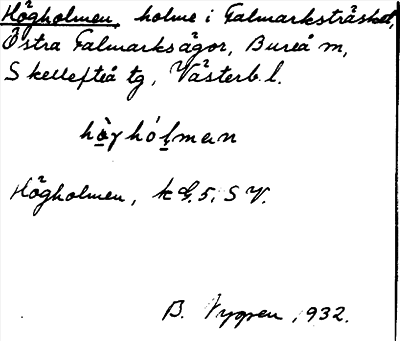 Högholmen, holme i Falmarksträsket,
Östra Falmarksägor, Bureå m,
Skellefteå tg, Västerb. l.
hö̀γhólmen
Högholmen, k G. 5, S V.
B. 1932.